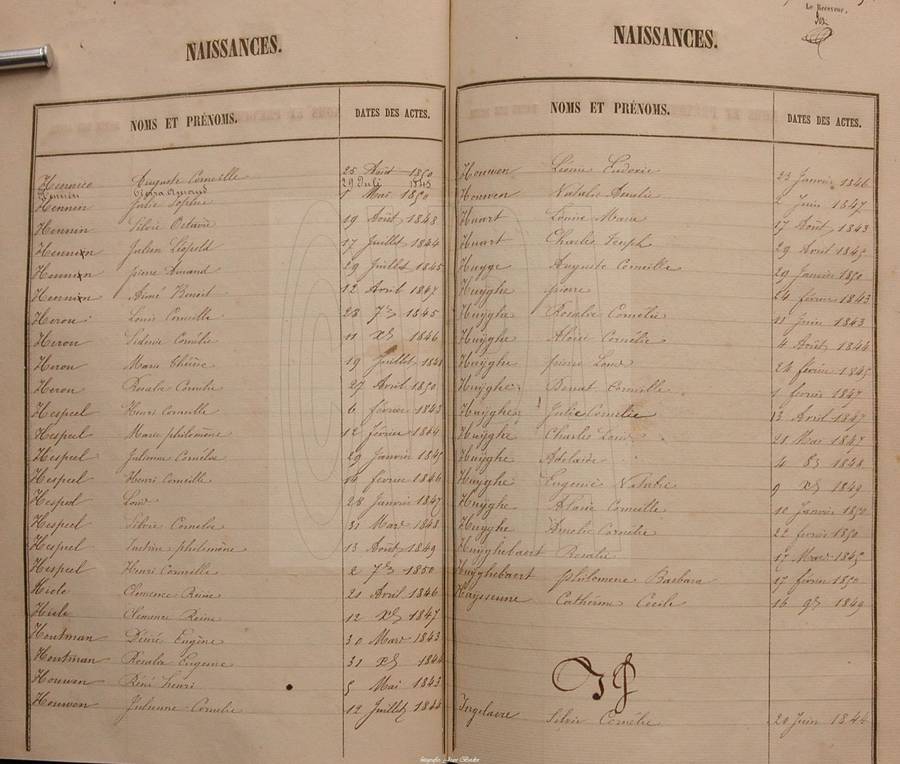 NAISSANCES.
NOMS ET PRÉNOMS. DATES DES ACTES.
Hennico Auguste Corneille 25 Août 1850
Hennin Amand 29 Juli 1845
Hennin Julie Sophie 7 Mai 1850
Hennin Silvie Octavie 19 Août 1843
Hennion Julien Léopold 17 Juillet 1844
Hennion pierre Amand 29 Juillet 1845
Hennion Aimé Benoit 12 Avril 1847
Heron Louis Corneille 28 7bre 1845
Heron Sidonie Cornélie 11 xbre 1846
Heron Marie Thérèse 19 Juillet 1848
Heron Rosalie Cornelie 27 Avril 1850
Hespeel Henri Corneille 6 février 1843
Hespeel Marie philomène 12 février 1844
Hespeel Julienne Cornélie 29 Janvier 1845
Hespeel Henri Corneille 14 fevrier 1846
Hespeel Louis 28 Janvier 1847
Hespeel Silvie Cornelie 31 Mars 1848
Hespeel Justine philomène 13 Août 1849
Hespeel Henri Corneille 2 7bre 1850
Hiele Clemence Reine 21 Avril 1846
Hiele Clemence Reine 12 xbre 1847
Houtman Désiré Eugène 30 Mars 1843
Houtman Rosalie Eugenie 31 xbre 1844
Houwen Réné henri 5 Mai 1843
Houwen Julienne Cornelie 12 Juillet 1844
Le Receveur,
NAISSANCES.
NOMS ET PRÉNOMS. DATES DES ACTES.
Houwen Leonie Ludovie 23 Janvier 1846
Houwen Natalie Amelie 2 Juin 1847
Huart Louise Marie 17 Août 1843
Huart Charles Joseph 29 Avril 1845
Huyge Auguste Corneille 29 Janvier 1850
Huÿghe pierre 24 février 1843
Huÿghe Rosalie Cornélie 11 Juin 1843
Huÿghe Aloïse Cornélie 4 Août 1844
Huÿghe pierre Louis 24 février 1845
Huÿghe Benoit Corneille 1 fevrier 1847
Huÿghe Julie Cornelie 13 Avril 1847
Huÿghe Charles Louis 21 Mai 1847
Huÿghe Adelaïde 4 8bre 1848
Huÿghe Eugenie Natalie 9 xbre 1849
Huÿghe Corneille 10 Janvier 1850
Huÿghe Amelie Cornélie 22 fevrier 1850
Huÿghebaert Rosalie 17 Mars 1845
Huÿghebaert philomene Barbara 17 février 1850
Huysseune Catherine Cecile 16 9bre 1849
Ingelaere Silvie Cornélie 20 Juin 1846